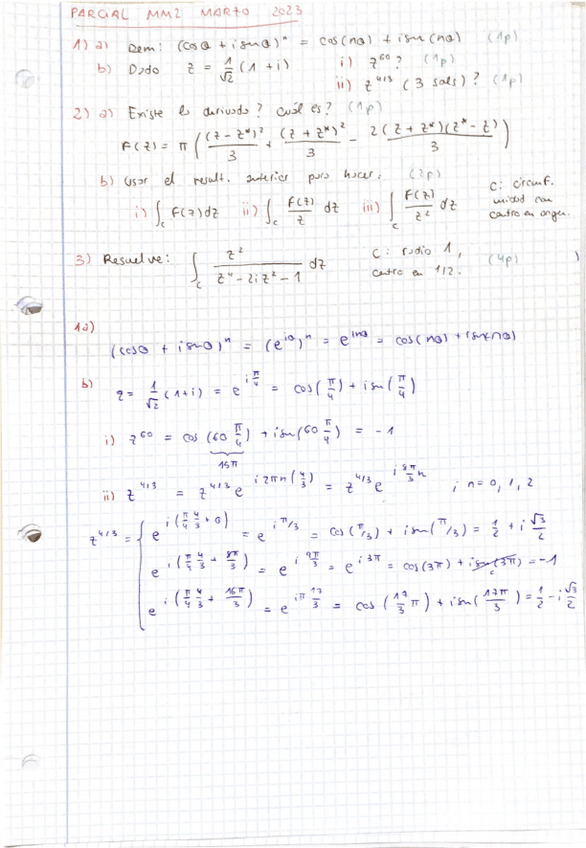 PARCIAL MM2 MARZO 2023
1) a) Dem: (cosθ + isenθ)^n = cos(nθ) + isen(nθ) (1p)
b) Dado z = 1/√2 (1 + i) i) z^60? (1p)
ii) z^4/3 (3 sols)? (1p)
2) a) Existe la derivada? Cuál es? (1p)
F(z) = π ( (z - z*)²/3 + (z + z*)²/3 - 2(z + z*)(z* - z)/3 )
b) Usar el result. anterior para hacer: (2p)
i) ∫_C F(z)dz ii) ∫_C F(z)/z dz iii) ∫_C F(z)/z² dz C: circunf. unidad con centro en origen.
3) Resuelve: ∫_C z²/(z⁴ - 2iz² - 1) dz C: radio 1, centro en 1/2. (4p)
1a)
(cosθ + isenθ)^n = (e^iθ)^n = e^inθ = cos(nθ) + isen(nθ)
b) z = 1/√2 (1+i) = e^iπ/4 = cos(π/4) + isen(π/4)
i) z^60 = cos(60 π/4) + isen(60 π/4) = -1
15π
ii) z^4/3 = z^4/3 e^i2πn(4/3) = z^4/3 e^i8π/3 n ; n = 0, 1, 2
z^4/3 = { e^i(π/4 4/3 + 0) = e^iπ/3 = cos(π/3) + isen(π/3) = 1/2 + i √3/2
e^i(π/4 4/3 + 8π/3) = e^i 9π/3 = e^i3π = cos(3π) + isen(3π) = -1
e^i(π/4 4/3 + 16π/3) = e^iπ 17/3 = cos(17/3 π) + isen(17π/3) = 1/2 - i √3/2